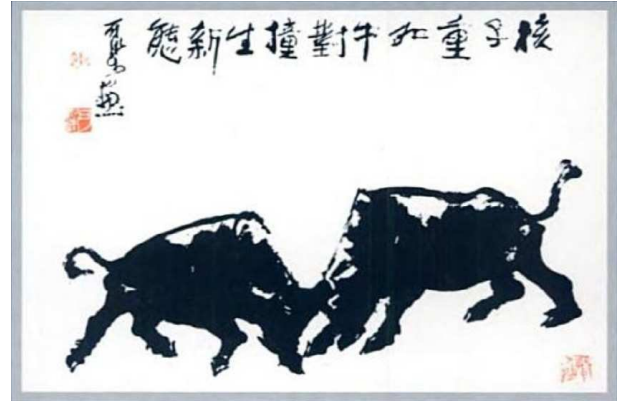 核子重如牛對撞生新態